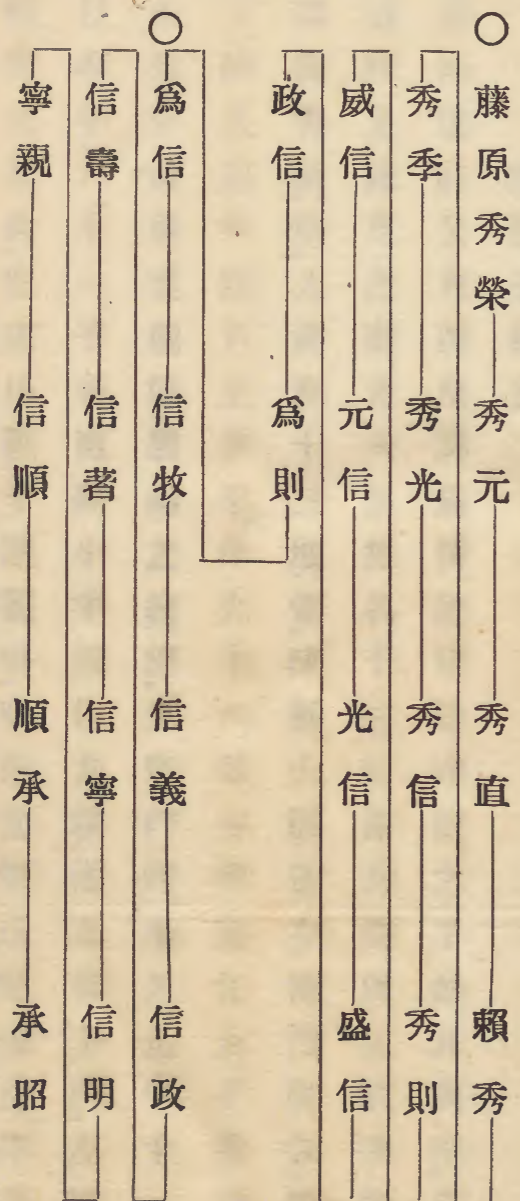 ○藤原秀榮 秀元 秀直 賴秀
秀季 秀光 秀信 秀則
威信 元信 光信 盛信
政信 爲則
○爲信 信牧 信義 信政
信壽 信著 信寧 信明
寧親 信順 順承 承昭